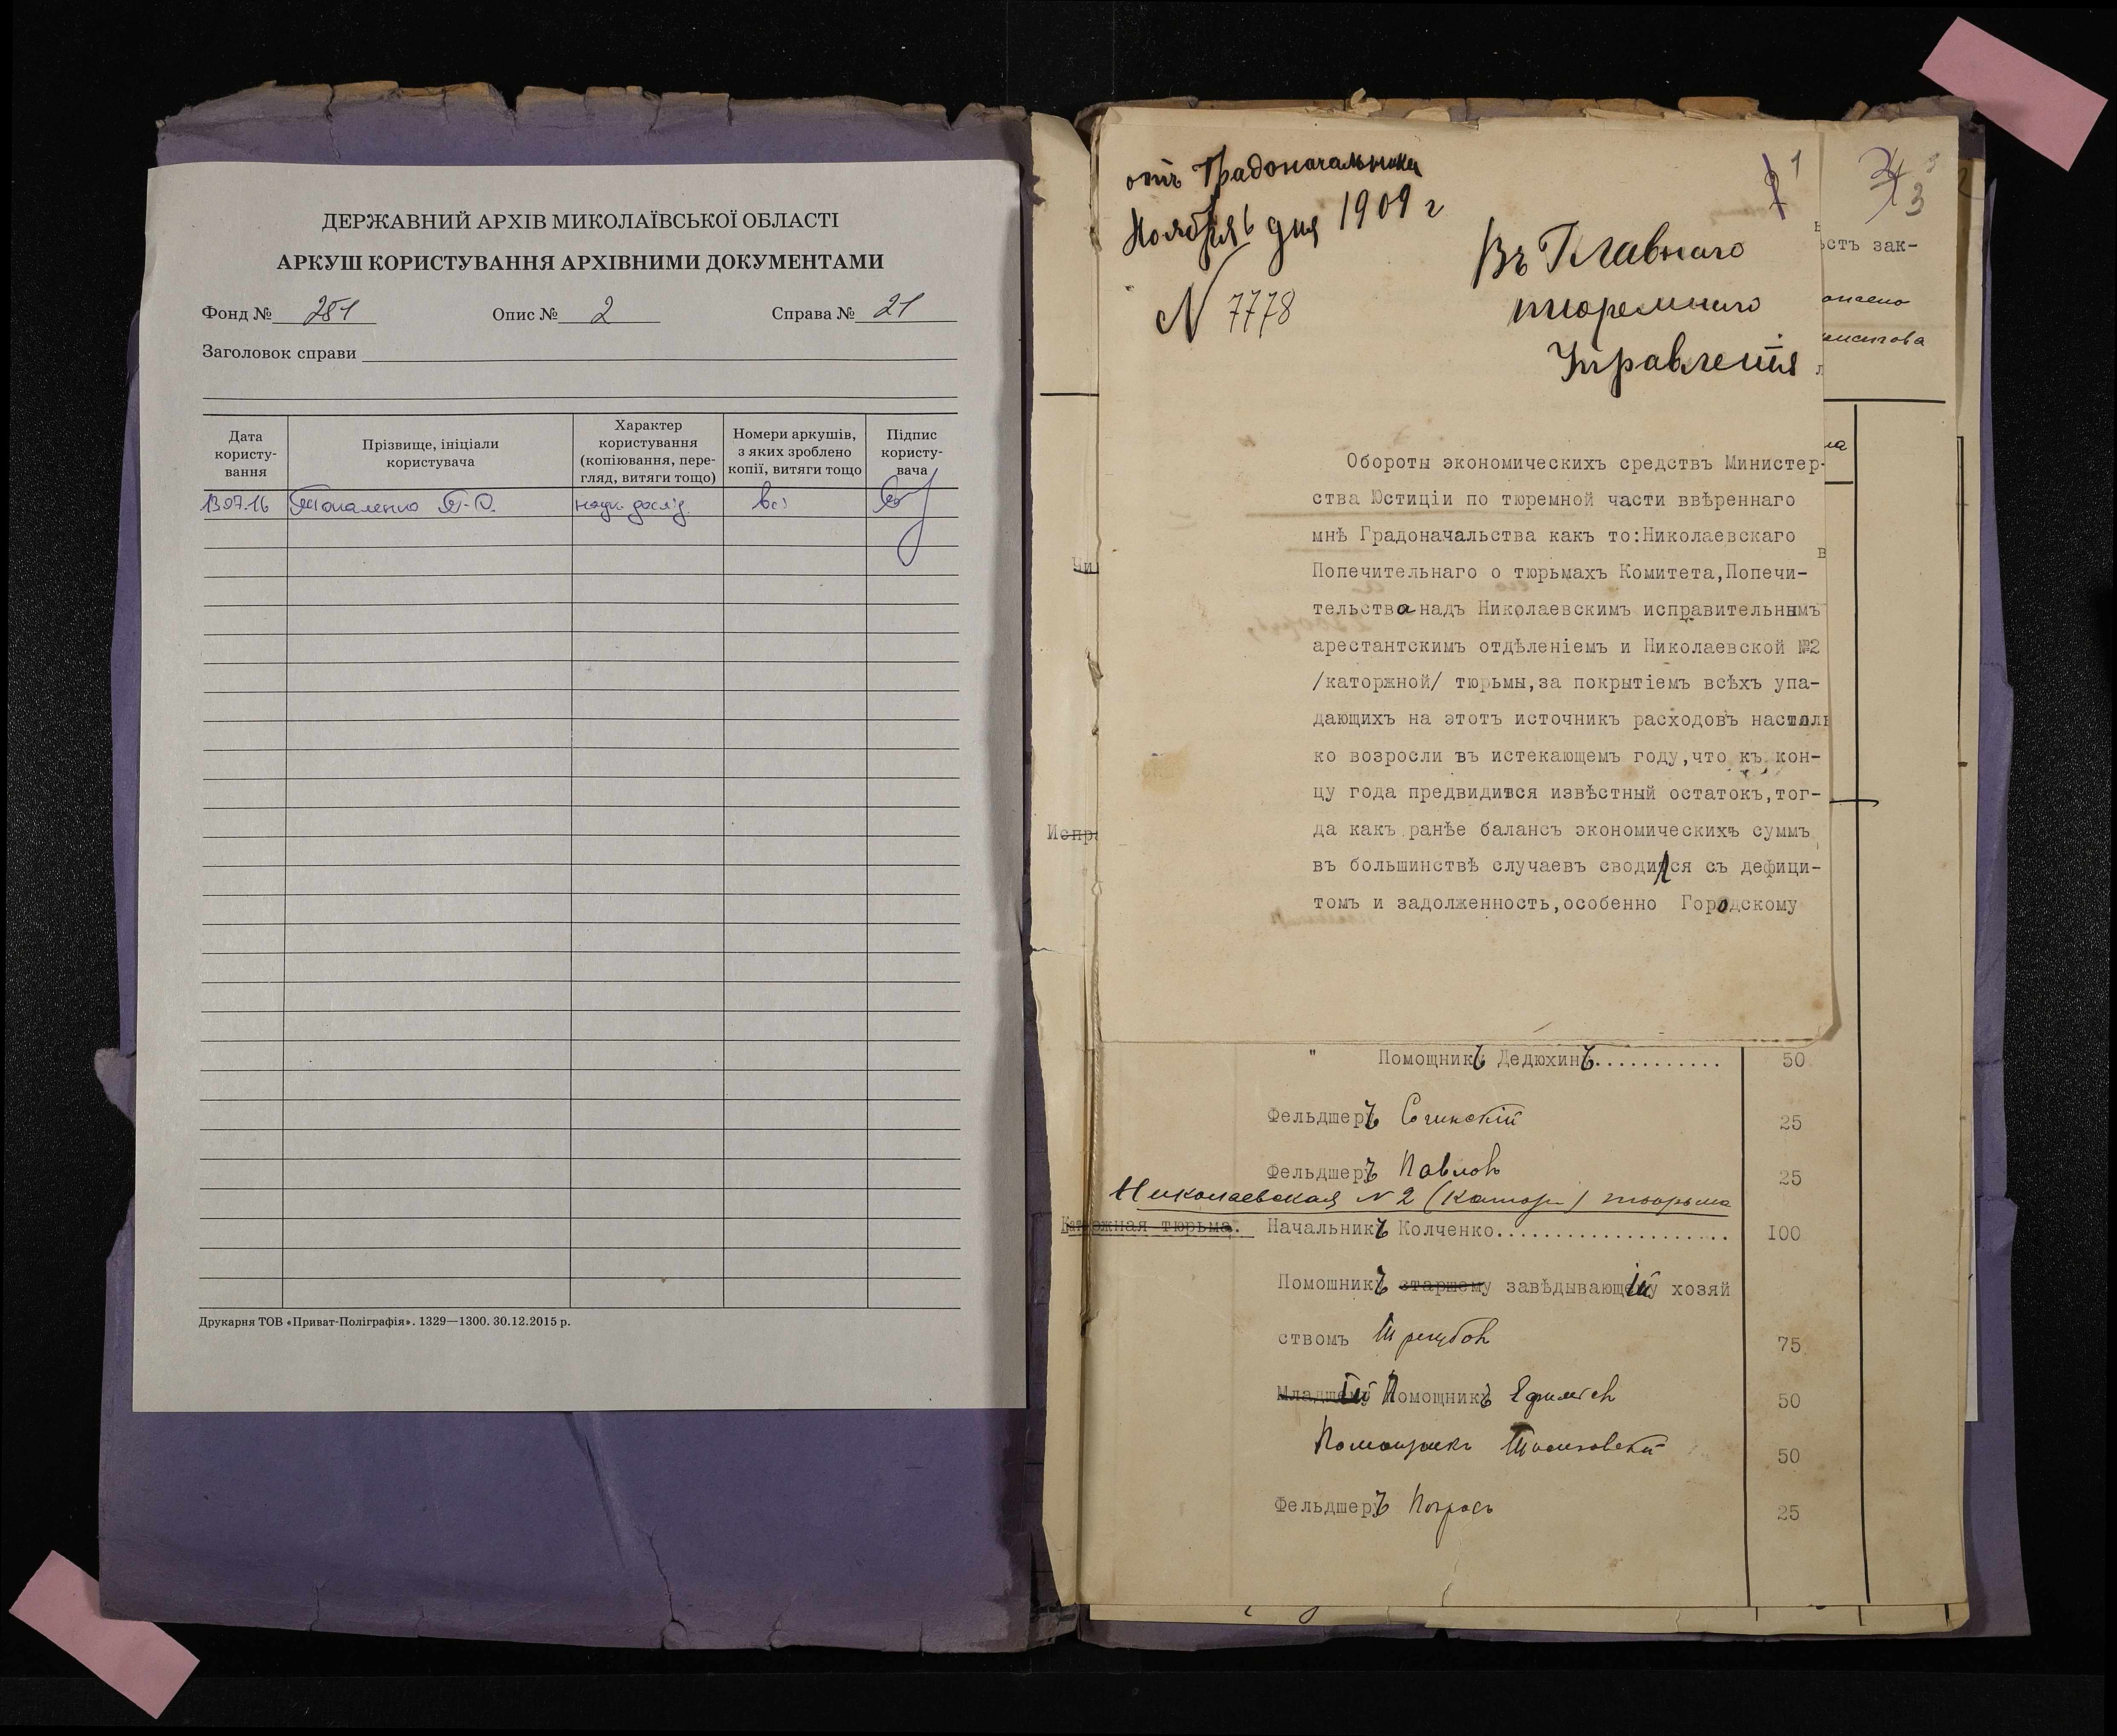 ДЕРЖАВНИЙ АРХІВ МИКОЛАЇВСЬКОЇ ОБЛАСТІ
АРКУШ КОРИСТУВАННЯ АРХІВНИМИ ДОКУМЕНТАМИ
Фонд № 281 Опис № 2 Справа № 21
Заголовок справи
Дата користу-вання
Прізвище, ініціали користувача
Характер користування (копіювання, пере-гляд, витяги тощо)
Номери аркушів, з яких зроблено копії, витяги тощо
Підпис користу-вача
13.07.16 наук. дослід. всі
Друкарня ТОВ «Приват-Поліграфія». 1329—1300. 30.12.2015 р.
отъ Градоначальника
Ноября 6 дня 1909 г
N 7778
1
3
Въ Главного
тюремного
Управленія
ьстъ зак-
Обороты экономическихъ средствъ Министер-
ства Юстиціи по тюремной части ввѣреннаго
мнѣ Градоначальства какъ то:Николаевскаго
Попечительнаго о тюрьмахъ Комитета,Попечи-
тельства надъ Николаевскимъ исправительнымъ
арестантскимъ отдѣленіемъ и Николаевской №2
/каторжной/ тюрьмы,за покрытіемъ всѣхъ упа-
дающихъ на этотъ источникъ расходовъ настоль
ко возросли въ истекающемъ году,что къ кон-
цу года предвидится извѣстный остатокъ,тог-
да какъ ранѣе балансъ экономическихъ суммъ
въ большинствѣ случаевъ сводился съ дефици-
томъ и задолженность,особенно Городскому
Испра
" Помощникъ Дедюхинъ........... 50
Фельдшеръ Сочинскій 25
Фельдшеръ Павловъ 25
Николаевская N 2 (Каторж) тюрьма
Каторжная тюрьма. Начальникъ Колченко.................... 100
Помошникъ старшему завѣдывающій хозяй
ствомъ Трегубов 75
Младшему Помощникъ Ефимов 50
Помощникъ 50
Фельдшеръ 25